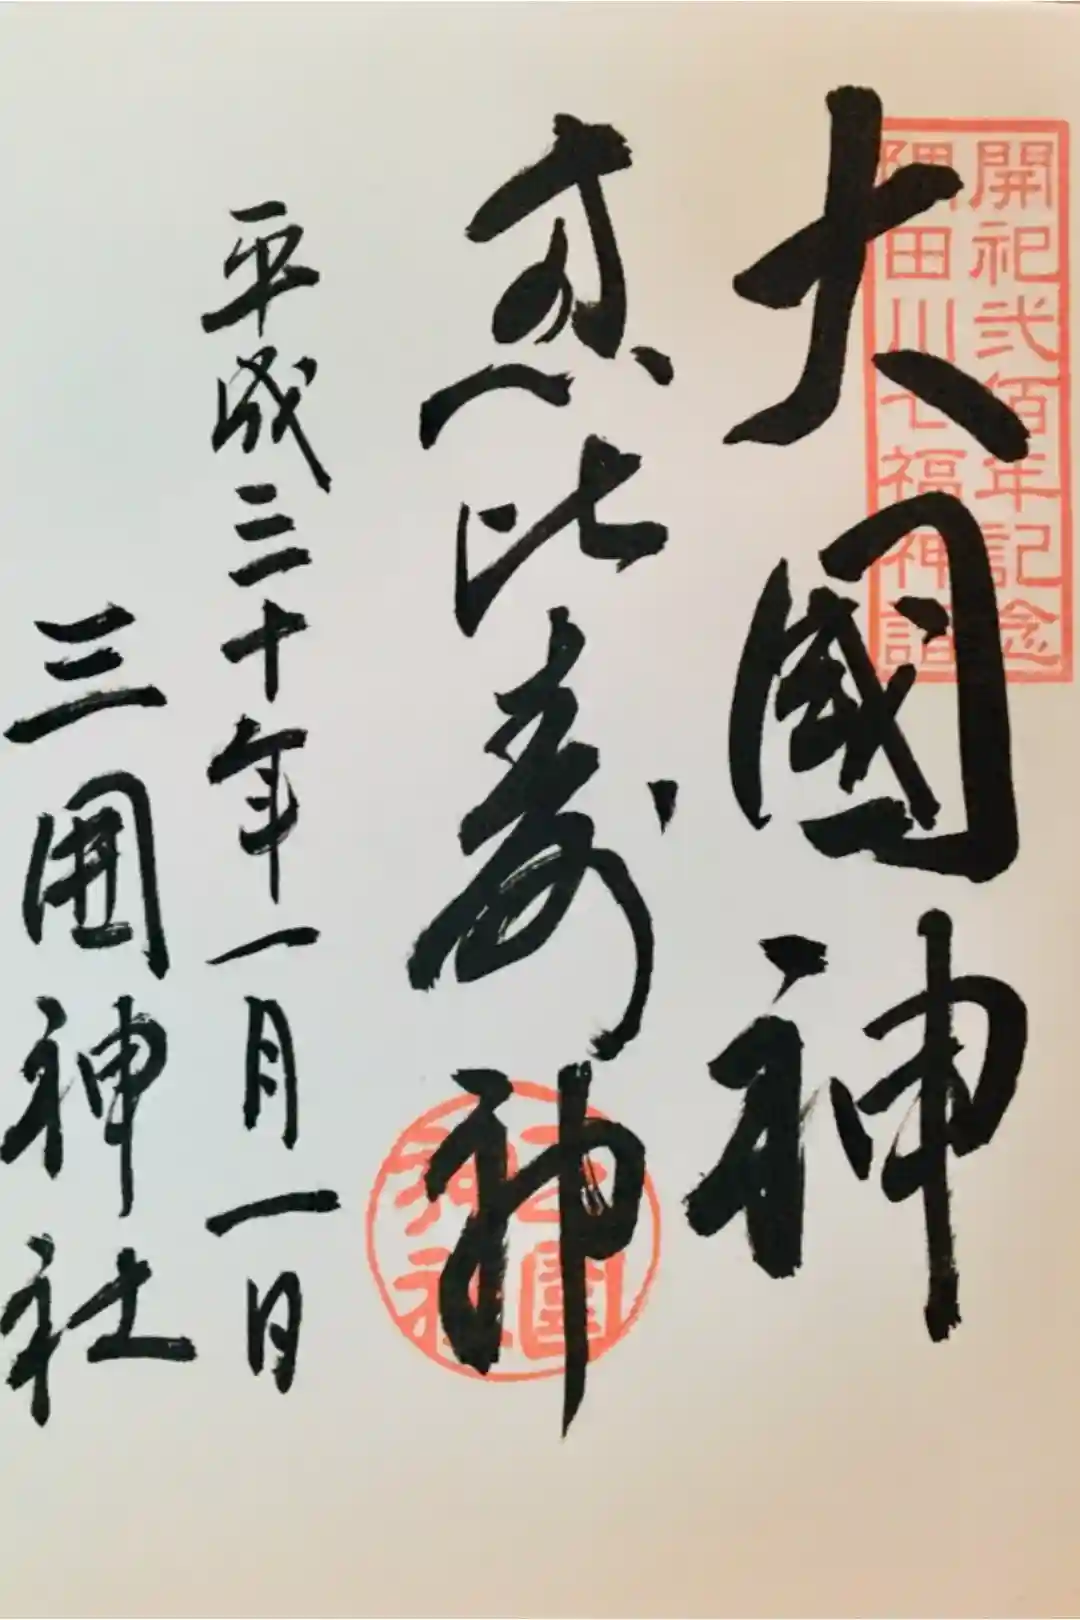 開祀弐佰年記念
隅田川七福神詣
大國神
恵比寿神
三囲神社
平成三十年一月一日
三囲神社